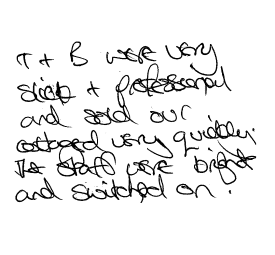 T + B were very
slick + professional
and sold our
cottage very quickly.
The staff were bright
and switched on.